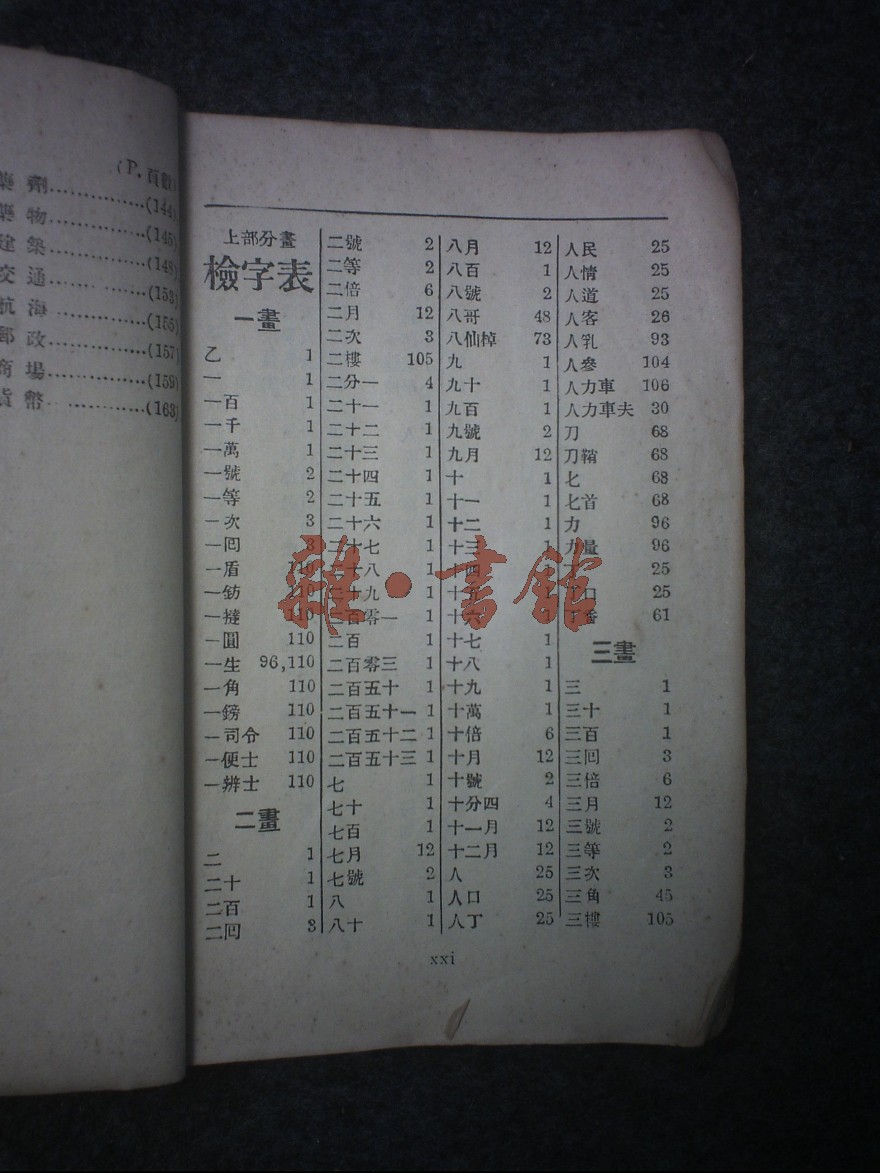 (P.頁數)
藥劑..............(144)
藥物..............(145)
建築..............(148)
交通..............(153)
航海..............(155)
郵政..............(157)
商場..............(159)
貨幣..............(163)
上部分畫
檢字表
一畫
乙 1
一 1
一百 1
一千 1
一萬 1
一號 2
一等 2
一次 3
一囘 3
一盾 110
一鈁 110
一撻 110
一圓 110
一生 96,110
一角 110
一鎊 110
一司令 110
一便士 110
一辨士 110
二畫
二 1
二十 1
二百 1
二囘 3
二號 2
二等 2
二倍 6
二月 12
二次 3
二樓 105
二分一 4
二十一 1
二十二 1
二十三 1
二十四 1
二十五 1
二十六 1
二十七 1
二十八 1
二十九 1
二百零一 1
二百 1
二百零三 1
二百五十 1
二百五十一 1
二百五十二 1
二百五十三 1
七 1
七十 1
七百 1
七月 12
七號 2
八 1
八十 1
八月 12
八百 1
八號 2
八哥 48
八仙棹 73
九 1
九十 1
九百 1
九號 2
九月 12
十 1
十一 1
十二 1
十三 1
十四 1
十五 1
十六 1
十七 1
十八 1
十九 1
十萬 1
十倍 6
十月 12
十號 2
十分四 4
十一月 12
十二月 12
人 25
人口 25
人丁 25
人民 25
人情 25
人道 25
人客 26
人乳 93
人參 104
人力車 106
人力車夫 30
刀 68
刀鞘 68
匕 68
匕首 68
力 96
力量 96
丁 25
丁口 25
丁香 61
三畫
三 1
三十 1
三百 1
三囘 3
三倍 6
三月 12
三號 2
三等 2
三次 3
三角 45
三樓 105
xxi
雜·書館